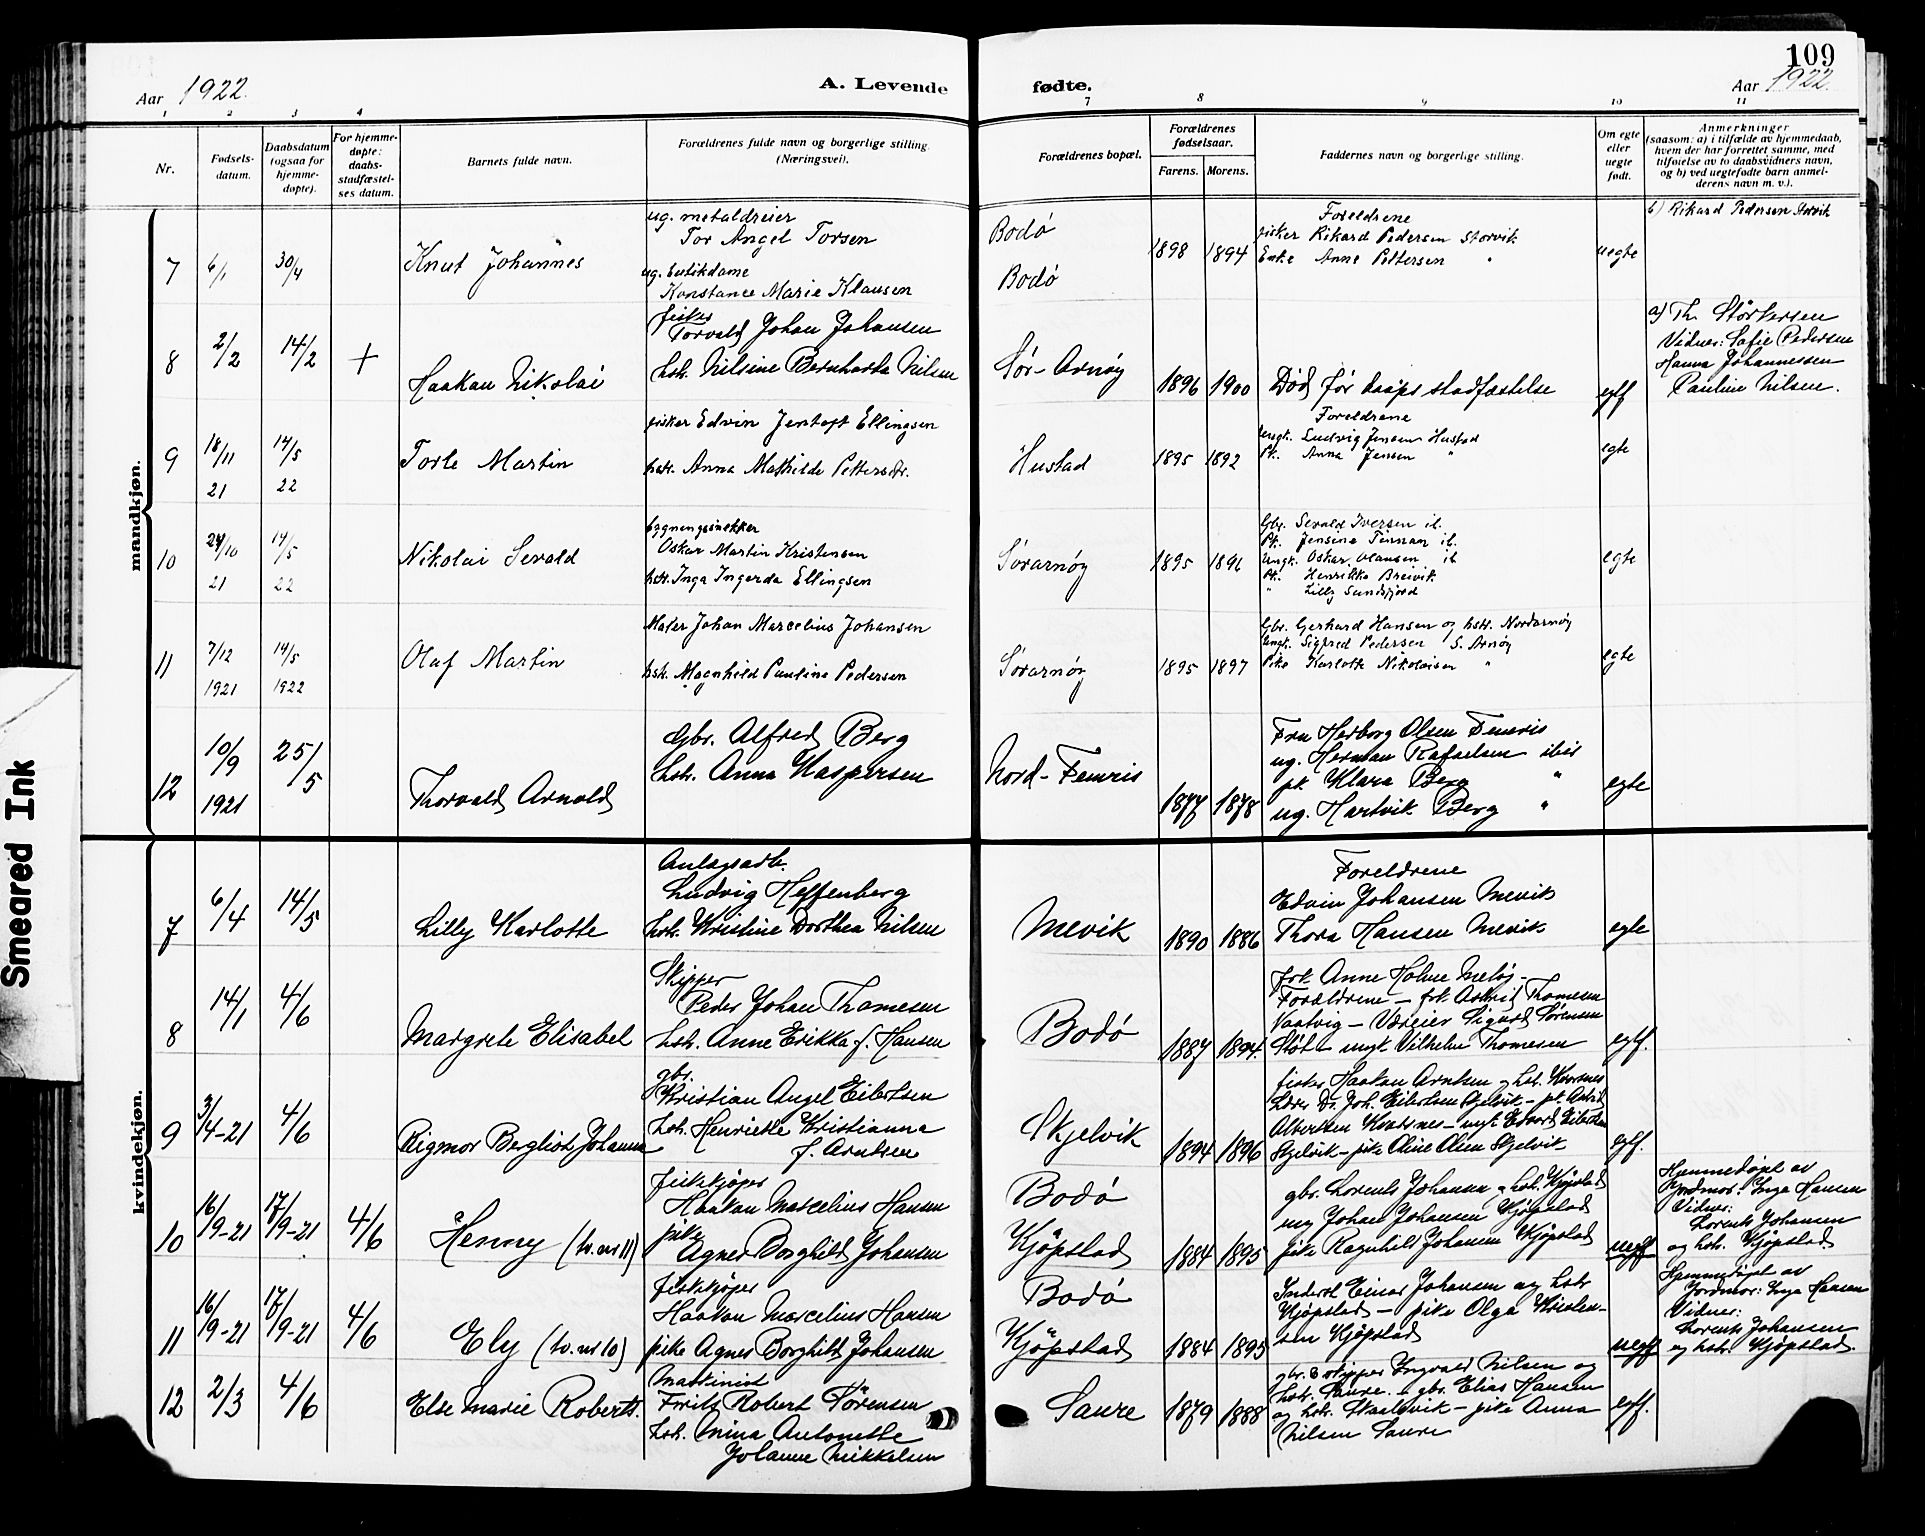 109
Aar 1922.
A. Levende
fødte.
Aar 1922.
1 2 3 4 7 8 9 10 11
Nr.
Fødsels-
datum.
Daabsdatum
(ogsaa for
hjemme-
døpte).
For hjemme-
døpte:
daabs-
stadfæstel-
ses datum.
Barnets fulde navn.
Forældrenes fulde navn og borgerlige stilling.
(Næringsvei).
Forældrenes bopæl.
Forældrenes
fødselsaar.
Farens. Morens.
Faddernes navn og borgerlige stilling.
Om egte
eller
uegte
født.
Anmerkninger
(saasom: a) i tilfælde av hjemmedaab,
hvem der har forrettet samme, med
tilføielse av to daabsvidners navn,
og b) ved uegtefødte barn anmel-
derens navn m. v.).
mandkjøn.
7
6/1
30/4
Knut Johannes
ug. metaldreier
Tor Angel Torsen
ug. butikdame
Konstance Marie Klausen
Bodø
Bodø
1898 1894
Foreldrene
fisker Rikard Pedersen Storvik
Enke Anna Pettersen "
uegte
b) Rikard Pedersen Storvik
8
2/2
14/2
+
Haakon Nikolai
fisker
Torvald Johan Johansen
hstr. Nilsine Bernharda Nilsen
Sør-Arnøy
1896 1900
Død før daapsstadfæstelse
egtf
a) Th. Størkersen
Vidner: Sofie Pedersen
Hanna Johannessen
Pauline Nilsen.
9
18/11
21
14/5
22
Torle Martin
fisker Edvin Jentoft Ellingsen
hstr. Anna Mathilde Pettersdtr.
Hustad
1895 1892
Foreldrene
Ungk. Ludvig Jensen Hustad
Pk. Anna Jensen "
egte
10
24/10
21
14/5
22
Nikolai Sevald
bygningssnekker
Oskar Martin Kristensen
hstr. Inga Ingarda Ellingsen
Sørarnøy
1895 1896
Gbr. Sevald Iversen ib.
Pk. Jensine Finnan ib.
Ungk. Oskar Olausen ib
Pk. Henrikke Breivik
" Lilly Sundsfjord
egte
11
7/12
1921
14/5
1922
Olaf Martin
Maler Johan Marcelius Johansen
hstr. Magnhild Pauline Pedersen
Sørarnøy
1895 1897
Gbr. Gerhard Hansen og hstr. Nordarnøy
Ungk. Sigfred Pedersen S. Arnøy
Pike Karlotte Nikolaisen "
egte
12
10/9
1921
25/5
Thorvald Arnold
Gbr. Alfred Berg
hstr. Anna Kaspersen
Nord-Femris
1877 1878
Fru Herborg Olsen Femris
ug. Herman Rafaelsen ibid
pk Klara Berg "
ug. Hartvik Berg "
egte
kvindekjøn.
7
6/4
14/5
Lilly Karlotte
Anlægsarb.
Ludvig Heffenberg
hstr. Kristine Dorthea Nilsen
Mevik
1890 1886
Foreldrene
Edvin Johansen Mevik
Thora Hansen Mevik
egte
8
14/1
4/6
Margrete Elisabet
Skipper
Peder Johan Thomesen
hstr. Anne Erikka f. Hansen
Bodø
1887 1894.
frk. Anne Holme Meløy -
Forældrene - frk. Astrid Thomesen
Vaatvig - Væreier Sigurd Sørensen
Støt - ungk Vilhelm Thomesen
egtf.
9
3/4-21
4/6
Rigmor Bergliot Johanna
gbr.
Kristian Angel Eilertsen
hstr. Henriette Kristianna
f. Arntsen
Skjelvik
1894 1896
fisker Haakon Arntsen og hstr. Kvarsnes
Lærer Dr. Joh. Eilertsen Skjelvik - pk Astrid
Albertsen Kvarsnes - ungk. Edvard Eilertsen
Skjelvik - pike Oline Olsen Skjelvik
egtf.
10
16/9-21
17/9-21
4/6
Henny (tv. nr 11)
fiskekjøper
Haakon Marcelius Hansen
pike
Agnes Borghild Johansen
Bodø
Kjøpstad
1884 1895
gbr. Lorents Johansen og hstr. Kjøpstad
ung Johan Johansen Kjøpstad
pike Ragnhild Johansen Kjøpstad
uegtf
Hjemmedøpt av
Jordmor: Inga Hansen
Vidner:
Lorents Johansen
og hstr. Kjøpstad
11
16/9-21
17/9-21
4/6
Ely (tv. nr 10)
fiskekjøper
Haakon Marcelius Hansen
pike Agnes Borghild Johansen
Bodø
Kjøpstad
1884 1895
Inderst Einar Johansen og hstr
Kjøpstad - pike Olga Kristen-
sen Kjøpstad
uegtf
Hjemmedøpt av
Jordmor: Inga Hansen
Vidner:
Lorents Johansen
og hstr. Kjøpstad.
12
2/3
4/6
Else Marie Roberth.
Maskinist
Frits Robert Sørensen
hstr. Mina Antonette
Johanne Mikkelsen
Saure
1879 1888
gbr. & skipper Ingvald Nilsen og
hstr. Saure. - gbr. Elias Hansen
og hstr. Skaalsvik - pike Anna
Nilsen Saure
egtf.
Smeared Ink